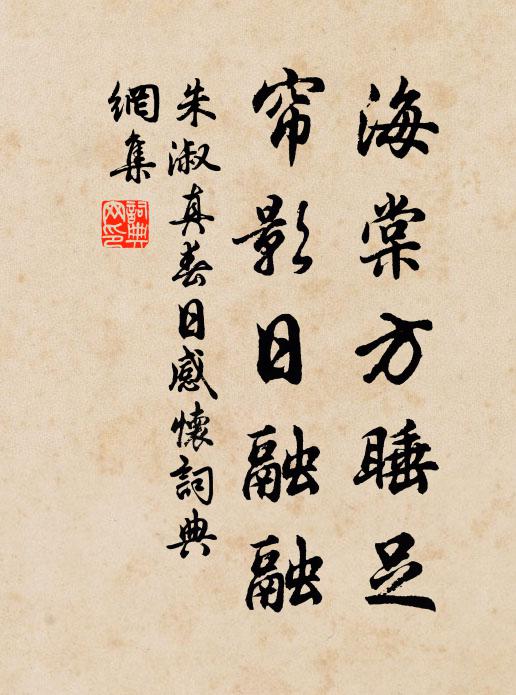 海棠方睡足
帘影日融融
朱淑真春日感懷詞典
網集
詞典
網印